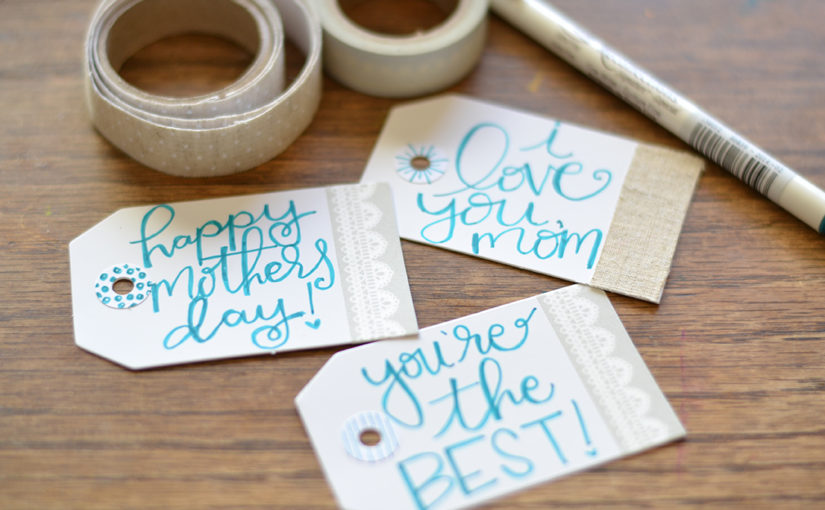 happy
mothers
day!
i
love
you,
mom
you're
the
BEST!